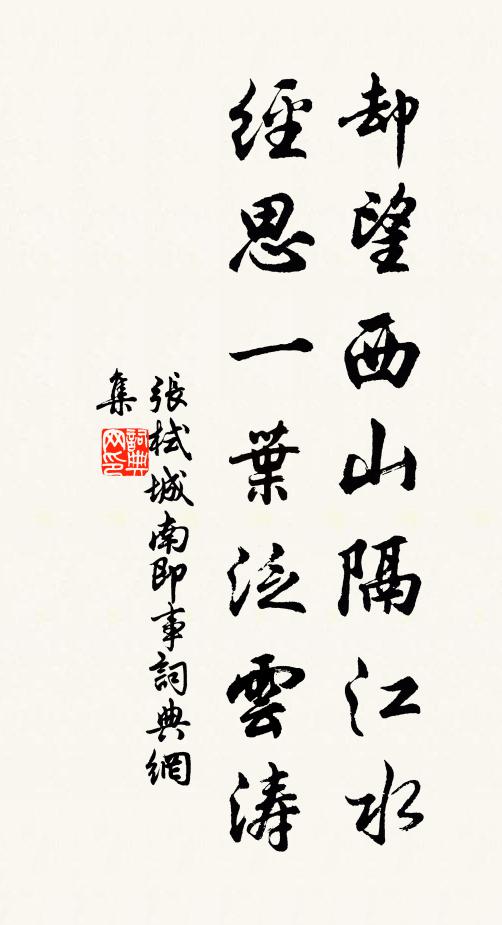 却望西山隔江水
經思一葉泛雲濤
張栻城南即事詞典網
集
詞典网印